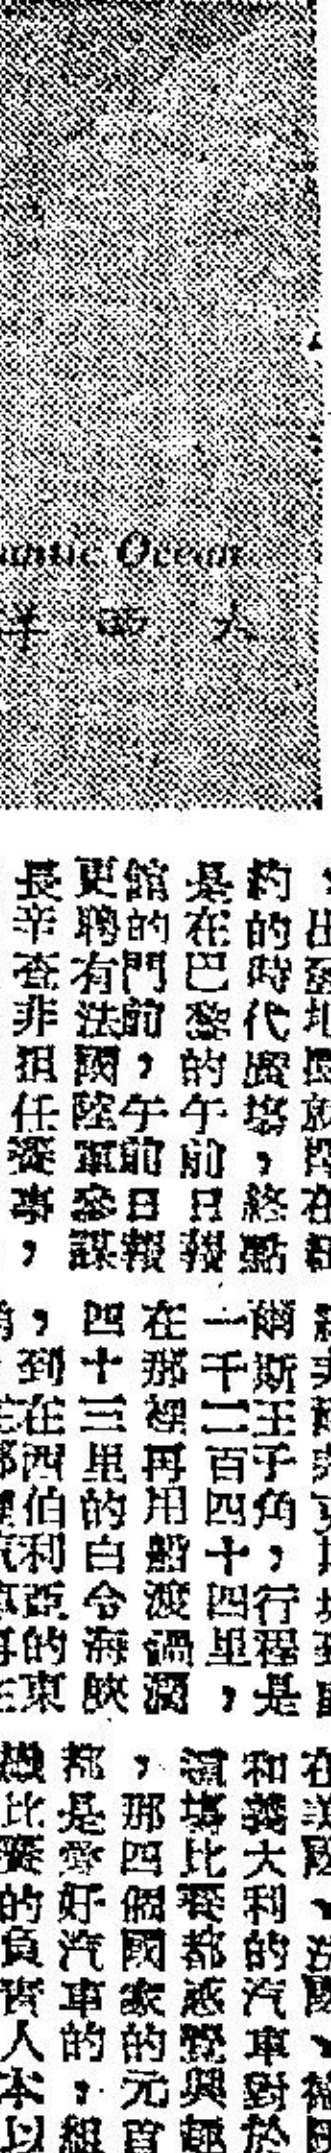 Ocean
大西洋
約的時代廣場,終點
是在巴黎的午前日報
館的門前,午前日報
更聘有法國陸軍參謀
長辛查非担任賽事,
爾斯王子角,行程是
一千二百四十四里,
在那裡再用船渡過濶
四十三里的白令海峽
,到在西伯利亞的東
和義大利的汽車對於
這場比賽都感覺興趣
,那四個國家的元首
都是愛好汽車的,組
比賽的負責人本以